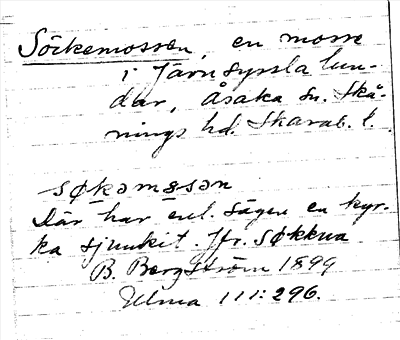 Söckemossen, en mosse
i Järnsyssla lun-
dar, Åsaka sn. Skå-
nings hd. Skarab. l.
søkəmɷsən
Där har enl. sägen en kyr-
ka sjunkit. Jfr. søkkua
B. Bergström 1899
Ulma 111:296.